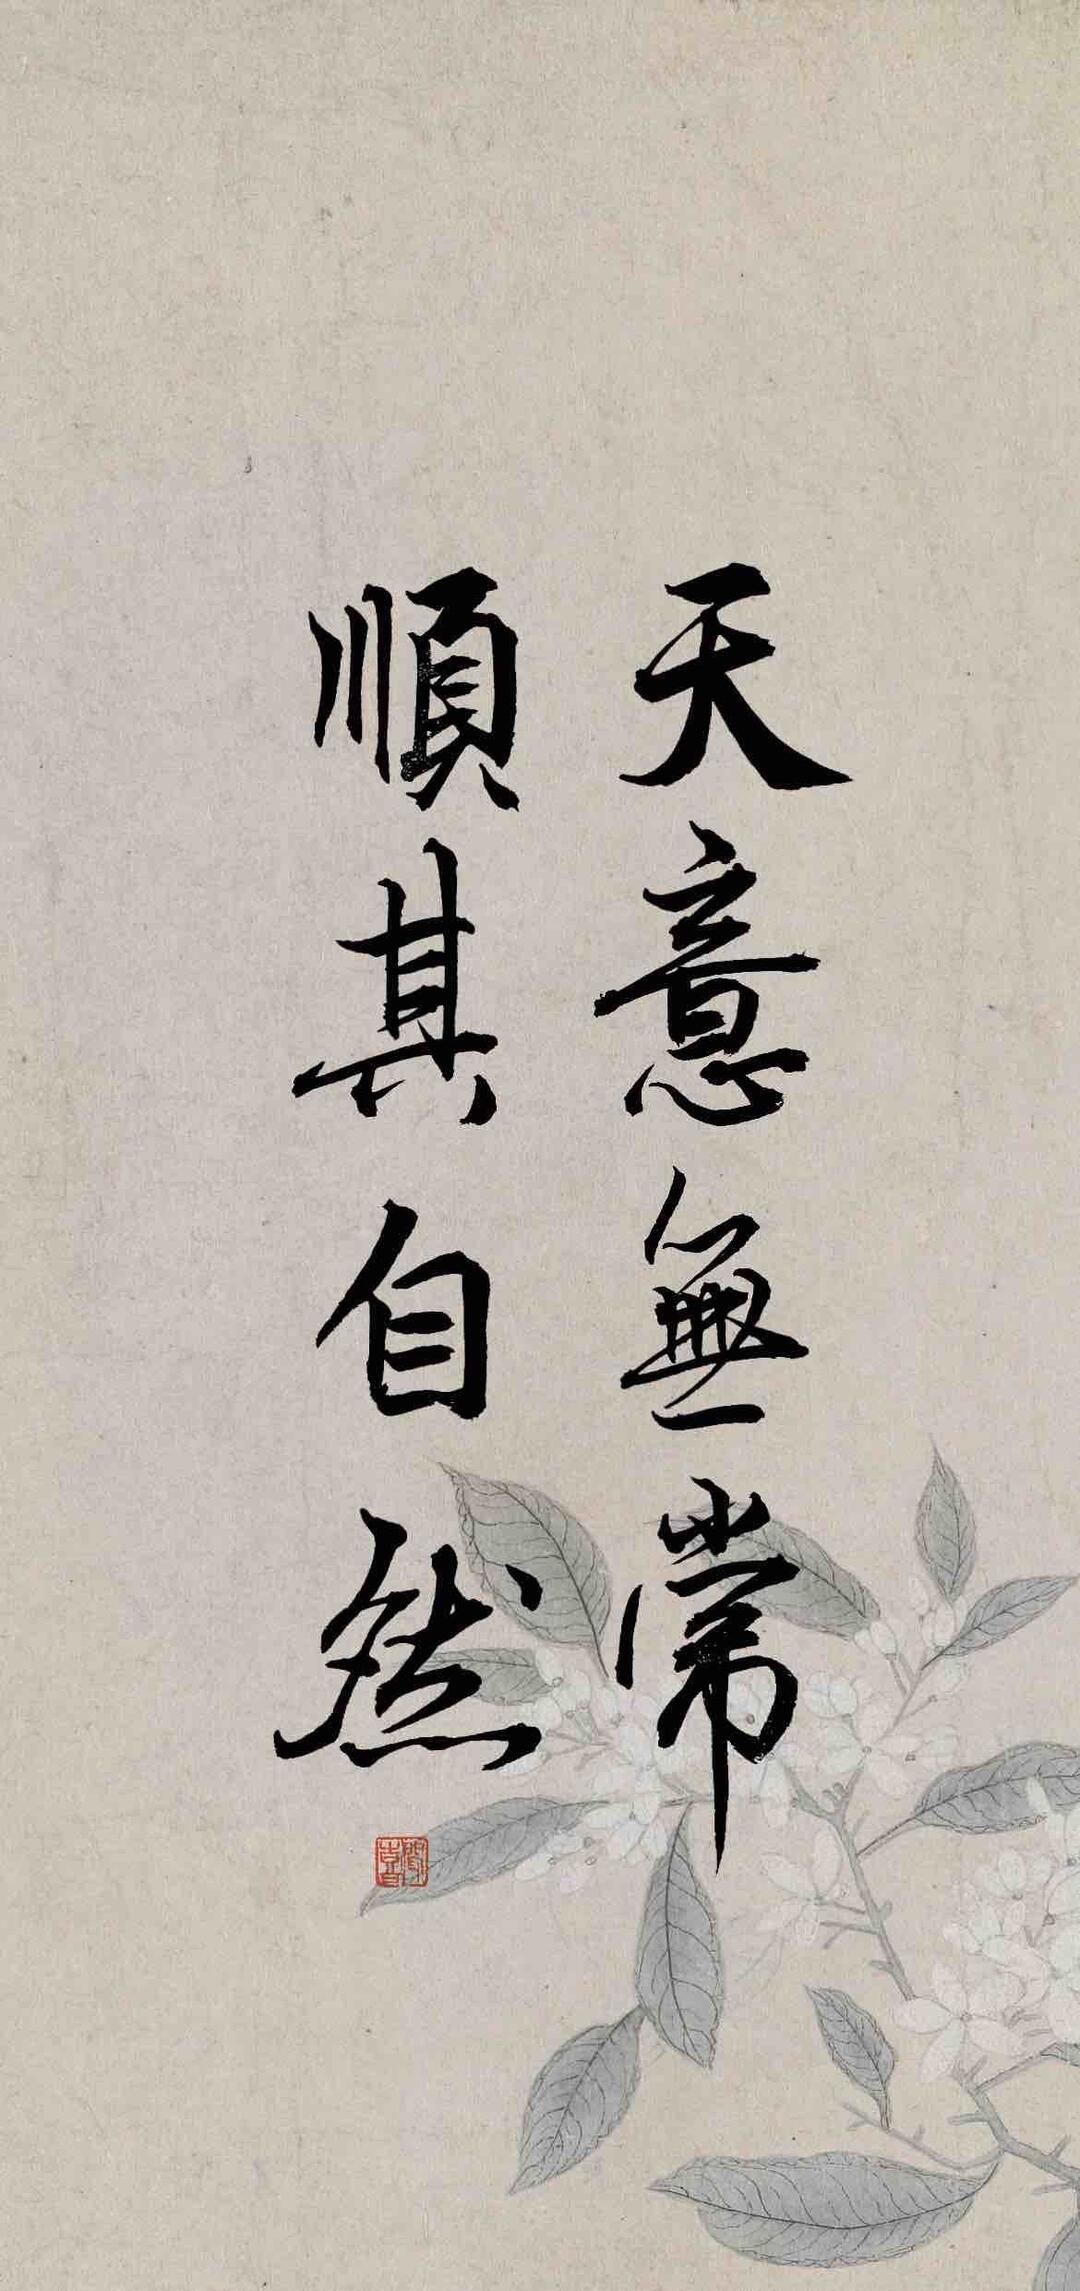 天意無常
順其自然